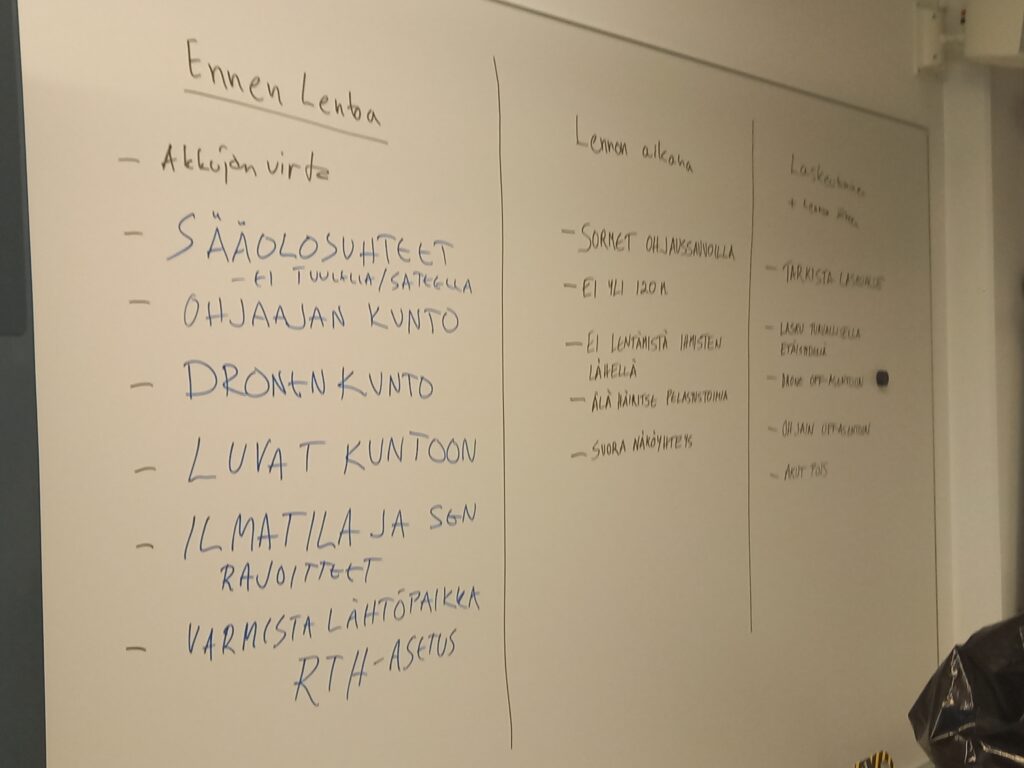 Ennen Lentoa
- Akkujen virta
- SÄÄOLOSUHTEET
- EI TUULELLA/SATEELLA
- OHJAAJAN KUNTO
- DRONEN KUNTO
- LUVAT KUNTOON
- ILMATILA JA SEN
RAJOITTEET
- VARMISTA LÄHTÖPAIKKA
RTH-ASETUS
Lennon aikana
- SORMET OHJAUSSAUVOILLA
- EI YLI 120M
- EI LENTÄMISTÄ IHMISTEN
LÄHELLÄ
- ÄLÄ HÄIRITSE PELASTUSTOIMIA
- SUORA NÄKÖYHTEYS
Laskeutuminen
+ Lennon jälkeen
- TARKISTA
- LASKU TURVALLISELLA
ETÄISYYDELLÄ
- OFF-ASENTOON
- OHJAIN OFF-ASENTOON
- AKUT POIS